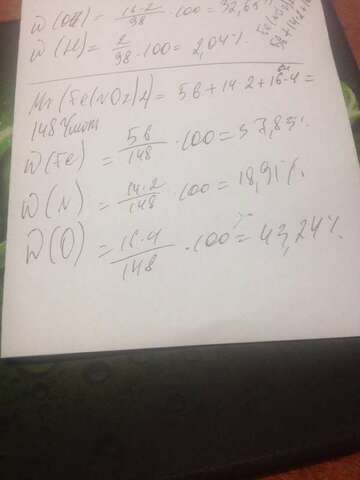 W(OH) = 16·2/98 · 100 = 32,65%
W(H) = 2/98 · 100 = 2,04%
Mr(Fe(NO2)2) = 56 + 14·2 + 16·4 =
148 г/моль
W(Fe) = 56/148 · 100 = 37,8%
W(N) = 14·2/148 · 100 = 18,91%
W(O) = 16·4/148 · 100 = 43,24%